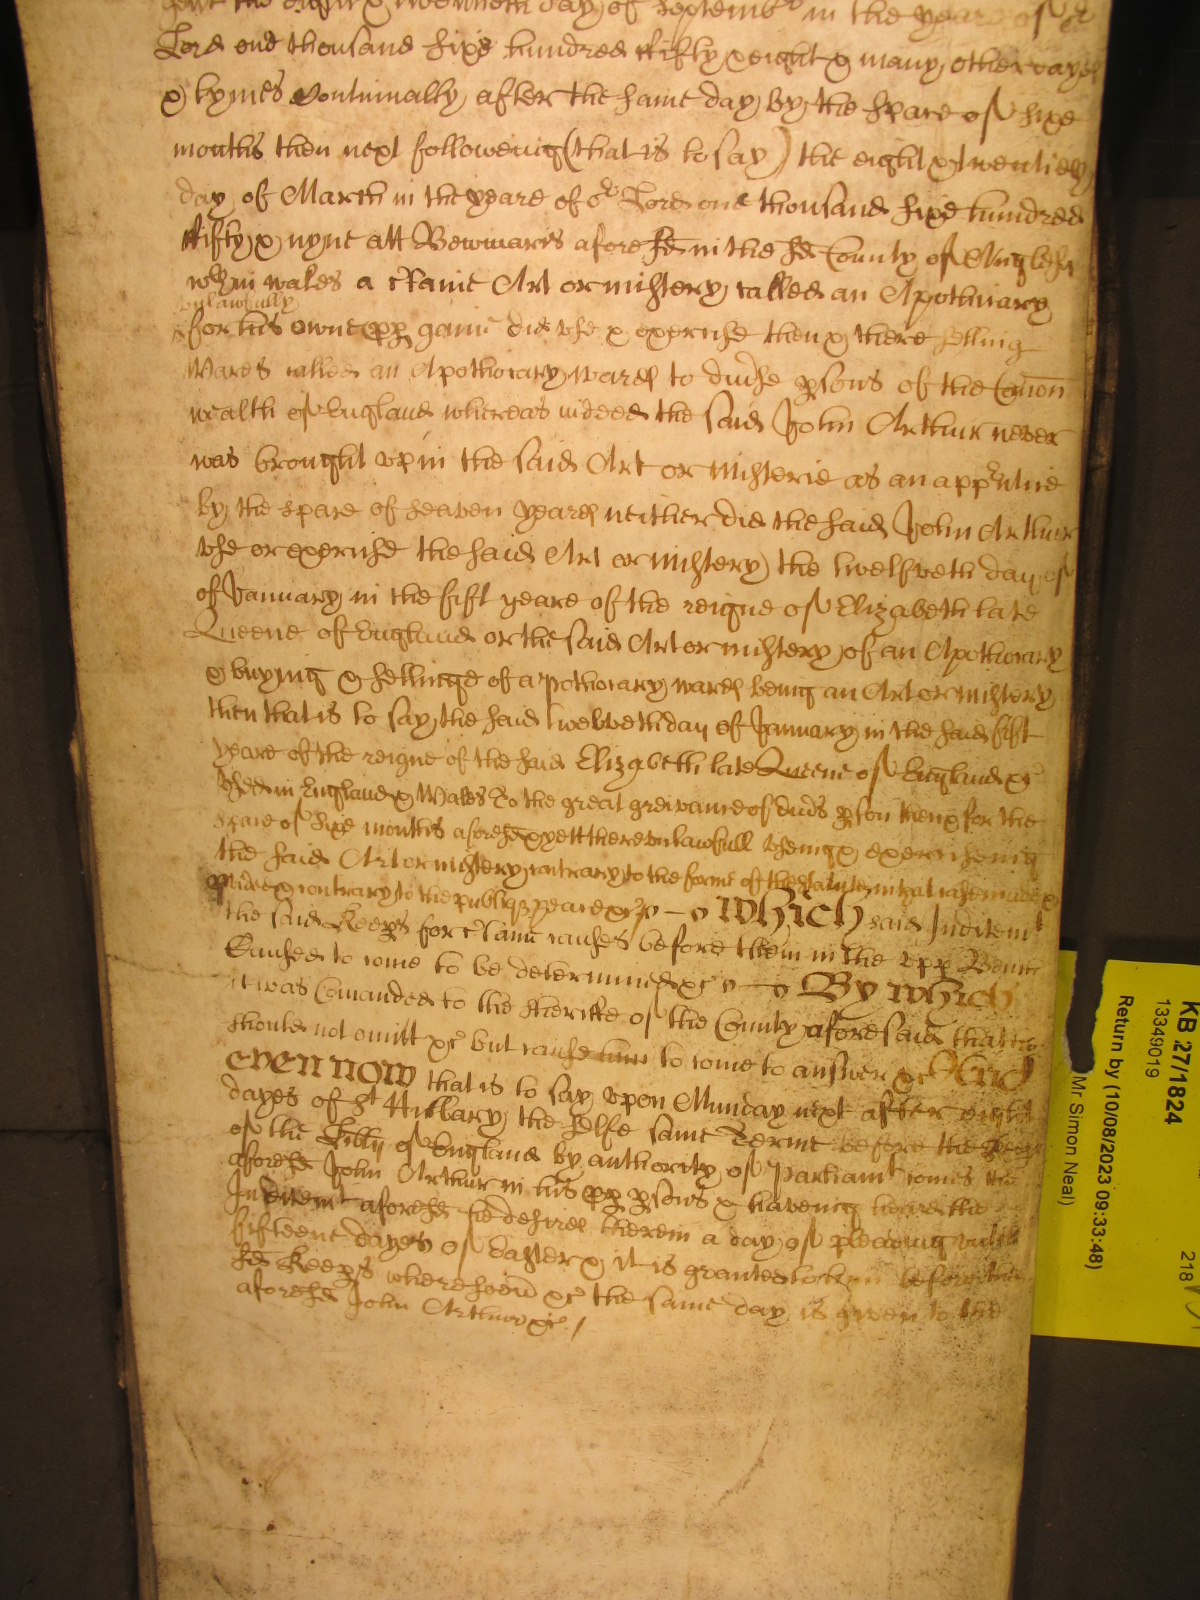 gent the eight & twentieth day of September in the yeare of or
Lord one thousand sixe hundred fifty & eight & many other dayes
& tymes Contynually after the same day by the space of sixe
months then next followeing (that is to say) the eight & twentieth
day of March in the yeare of or Lord one thousand sixe hundred
fifty & nyne att Bewmaris afore sd in the sd County of Anglesey
wthin wales a Trade Art or mistery called an Apothicary
unlawfully
for his owne pp gaine did use & exercise then & there selling
Wares called an Apothicary wares to divse psons of the Comon
wealth of England whereas indeed the said John Arthur never
was brought up in the said Art or Misterie as an apprntice
by the space of seaven yeares neither did the said John Arthur
use or exercise the said Art or Mistery the twelfveth day of
of January in the fift yeare of the reigne of Elizabeth late
Queene of England or the said Art or mistery of an Apothicary
& buying & sellinge of apothicary wares being an Art or mistery
then that is to say the said twelveth day of January in the said fift
yeare of the reigne of the said Elizabeth late Queene of England &c
used in England & Wales To the great greivance of divs pson then & for the
space of sixe months aforesd & yett there unlawfull useing & exerciseing
the said Art or mistery contrary to the forme of the statute in that case made &
pvided & contrary to the publiq peace &c Which said Inditemt
the said Keeps for Taine causes before them in the upp Bench
Caused to come to be determined &c By which
it was Comanded to the sheriffe of the County aforesaid that he
should not omitt &c but cause him to come to answer &c And
even now that is to say upon Munday next after eight
dayes of St Hillary the selfe same Terme before the Keeps
of the Libty of England by authority of Parliamt comes the
aforesd John Arthur in his pp psons & haveing heard the
Inditemt aforesd he desires therein a day of pleading untill
fifteene dayes of Easter & it is granted to him before the
sd Keeps wheresoevr &c the same day is given to the
aforesd John Arthur &c /
KB 27/1824
13349019
218
Return by (10/08/2023 09:33:48)
Mr Simon Neal)